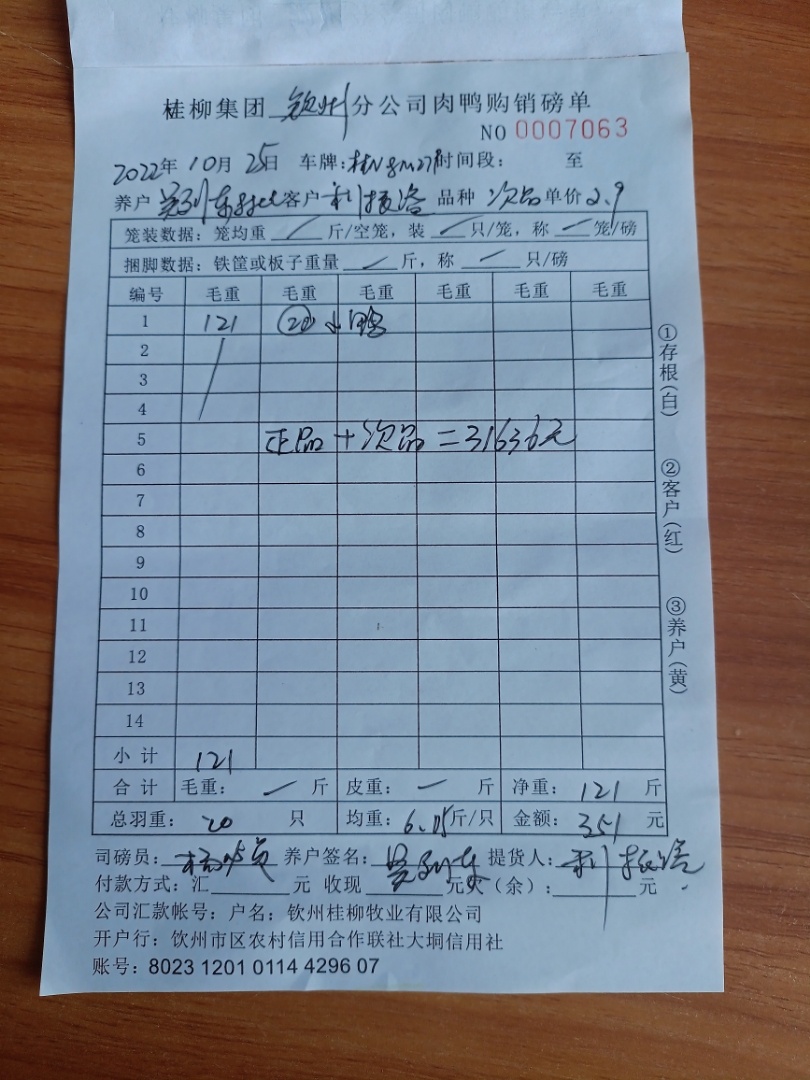 桂柳集团 钦州 分公司肉鸭购销磅单
NO 0007063
2022年 10月 25日 车牌: 时间段: 至
养户 客户 品种 次品 单价 2.9
笼装数据:笼均重 / 斤/空笼,装 / 只/笼,称 / 笼/磅
捆脚数据:铁筐或板子重量 / 斤,称 / 只/磅
编号 毛重 毛重 毛重 毛重 毛重 毛重
1 121 20 小鸭
2
3
4
5 正品+次品=31636元
6
7
8
9
10
11
12
13
14
小计 121
合计 毛重: 一 斤 皮重: 一 斤 净重: 121 斤
总羽重: 20 只 均重: 6.05 斤/只 金额: 351 元
司磅员: 养户签名: 提货人:
付款方式:汇 元 收现 元欠(余): 元
公司汇款帐号:户名:钦州桂柳牧业有限公司
开户行:钦州市区农村信用合作联社大垌信用社
账号:8023 1201 0114 4296 07
①存根(白)
②客户(红)
③养户(黄)